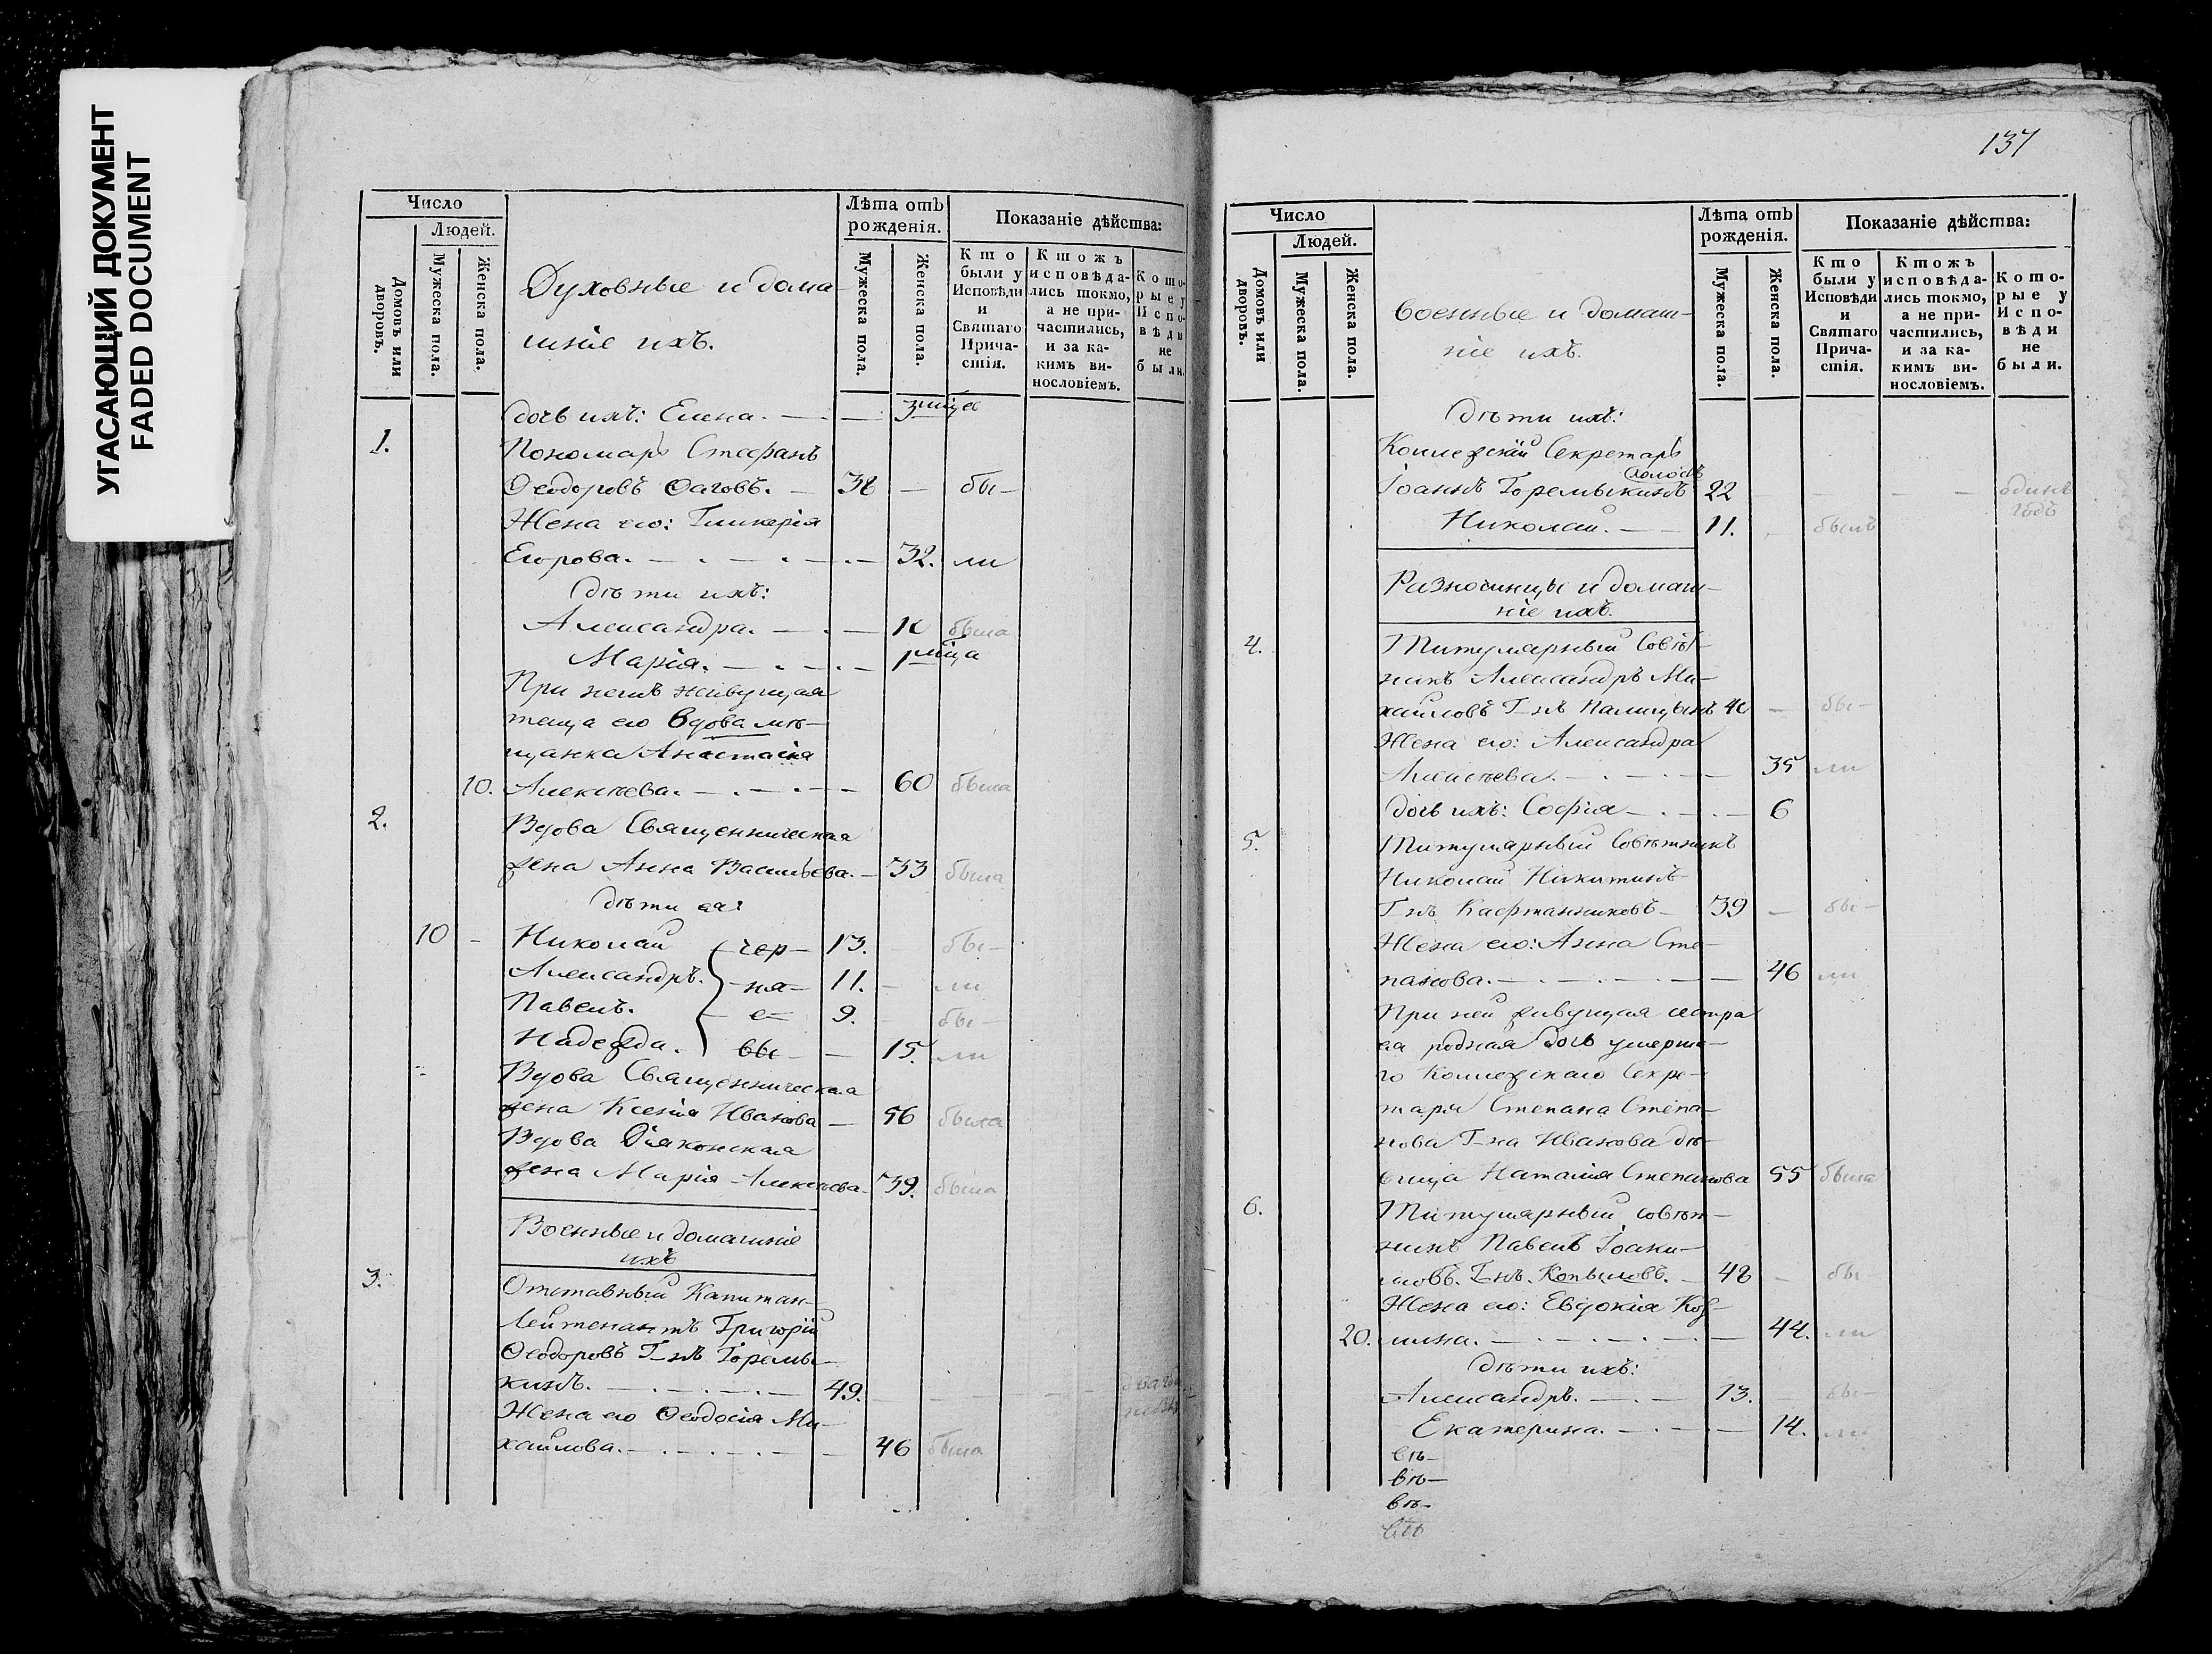 УГАСАЮЩИЙ ДОКУМЕНТ
FADED DOCUMENT
Число
Людей.
Домовъ или дворовъ.
Мужеска пола.
Женска пола.
Духовные и дома-
шніе ихъ.
Лѣта отъ
рожденія.
Мужеска пола.
Женска пола.
Показаніе дѣйства:
Кто
были у
Исповѣди
и
Святаго
Прича-
стія.
Ктожъ
исповѣда-
лись токмо,
а не при-
частились,
и за ка-
кимъ ви-
нословіемъ.
Кото-
рые у
Испо-
вѣди
не
были.
дочь ихъ: Елена. — — 3 мѣс
1. Пономарь Стефанъ
Ѳеодоровъ — 38 — бы-
Жена его: Гликерія
Егорова. — 32. ли
дѣти ихъ:
Александра. — была
Марія. — 1 мѣсца
При немъ живущая
теща его вдова мѣ-
щанка Анастасія
10. Алексѣева. — 60 была
2. Вдова Священническая
жена Анна Васильева. — 33 была
дѣти ея:
10 - Николай — чер — 13. бы-
Александръ. — ня — 11. — ли
Павелъ. — е — 9. бы-
Надежда. вы — — 15. ли
Вдова Священническая
жена Ксенія Иванова — 56 была
Вдова Діяконская
жена Марія Алексѣева. 39. была
Военные и домашніе
ихъ
3. Отставный Капитан-
Лейтенантъ Григорій
Ѳеодоровъ Г-нъ Горемы-
кинъ. — 49.
Жена его Ѳеодосія Ми-
хайлова. — 46 была
137
Число
Людей.
Домовъ или дворовъ.
Мужеска пола.
Женска пола.
Военные и домаш-
ніе ихъ.
Лѣта отъ
рожденія.
Мужеска пола.
Женска пола.
Показаніе дѣйства:
Кто
были у
Исповѣди
и
Святаго
Прича-
стія.
Ктожъ
исповѣда-
лись токмо,
а не при-
частились,
и за ка-
кимъ ви-
нословіемъ.
Кото-
рые у
Испо-
вѣди
не
были.
дѣти ихъ:
Коллежскій Секретарь
холостъ
Іоаннъ Горемыкинъ 22 — — — одинъ
годъ
Николай. — 11. былъ
Разночинцы и домаш-
ніе ихъ.
4. Титулярный Совѣт-
никъ Александръ Ми-
хайловъ Г-нъ Палицынъ 40 — бы-
Жена его: Александра
Алексѣева. — 35 ли
дочь ихъ: Софія — 6
5. Титулярный Совѣтникъ
Николай Никитинъ
Г-нъ Кафтанниковъ — 39 — бы-
Жена его: Анна Сте-
панова. — 46 ли
При ней живущая сестра
ея родная дочь умерша-
го Коллежскаго Секре-
таря Степана Степа-
нова Г-на Иванова дѣ-
вица Наталія Степанова 55 была
6. Титулярный совѣт-
никъ Павелъ Іоаки-
мовъ. Г-нъ. Копыловъ. — 48 — бы-
Жена его: Евдокія Коз-
20. мина. — 44. ли
дѣти ихъ:
Александръ. — 13. бы-
Екатерина. — 14. ли
вѣ-
вѣ-
вѣ-